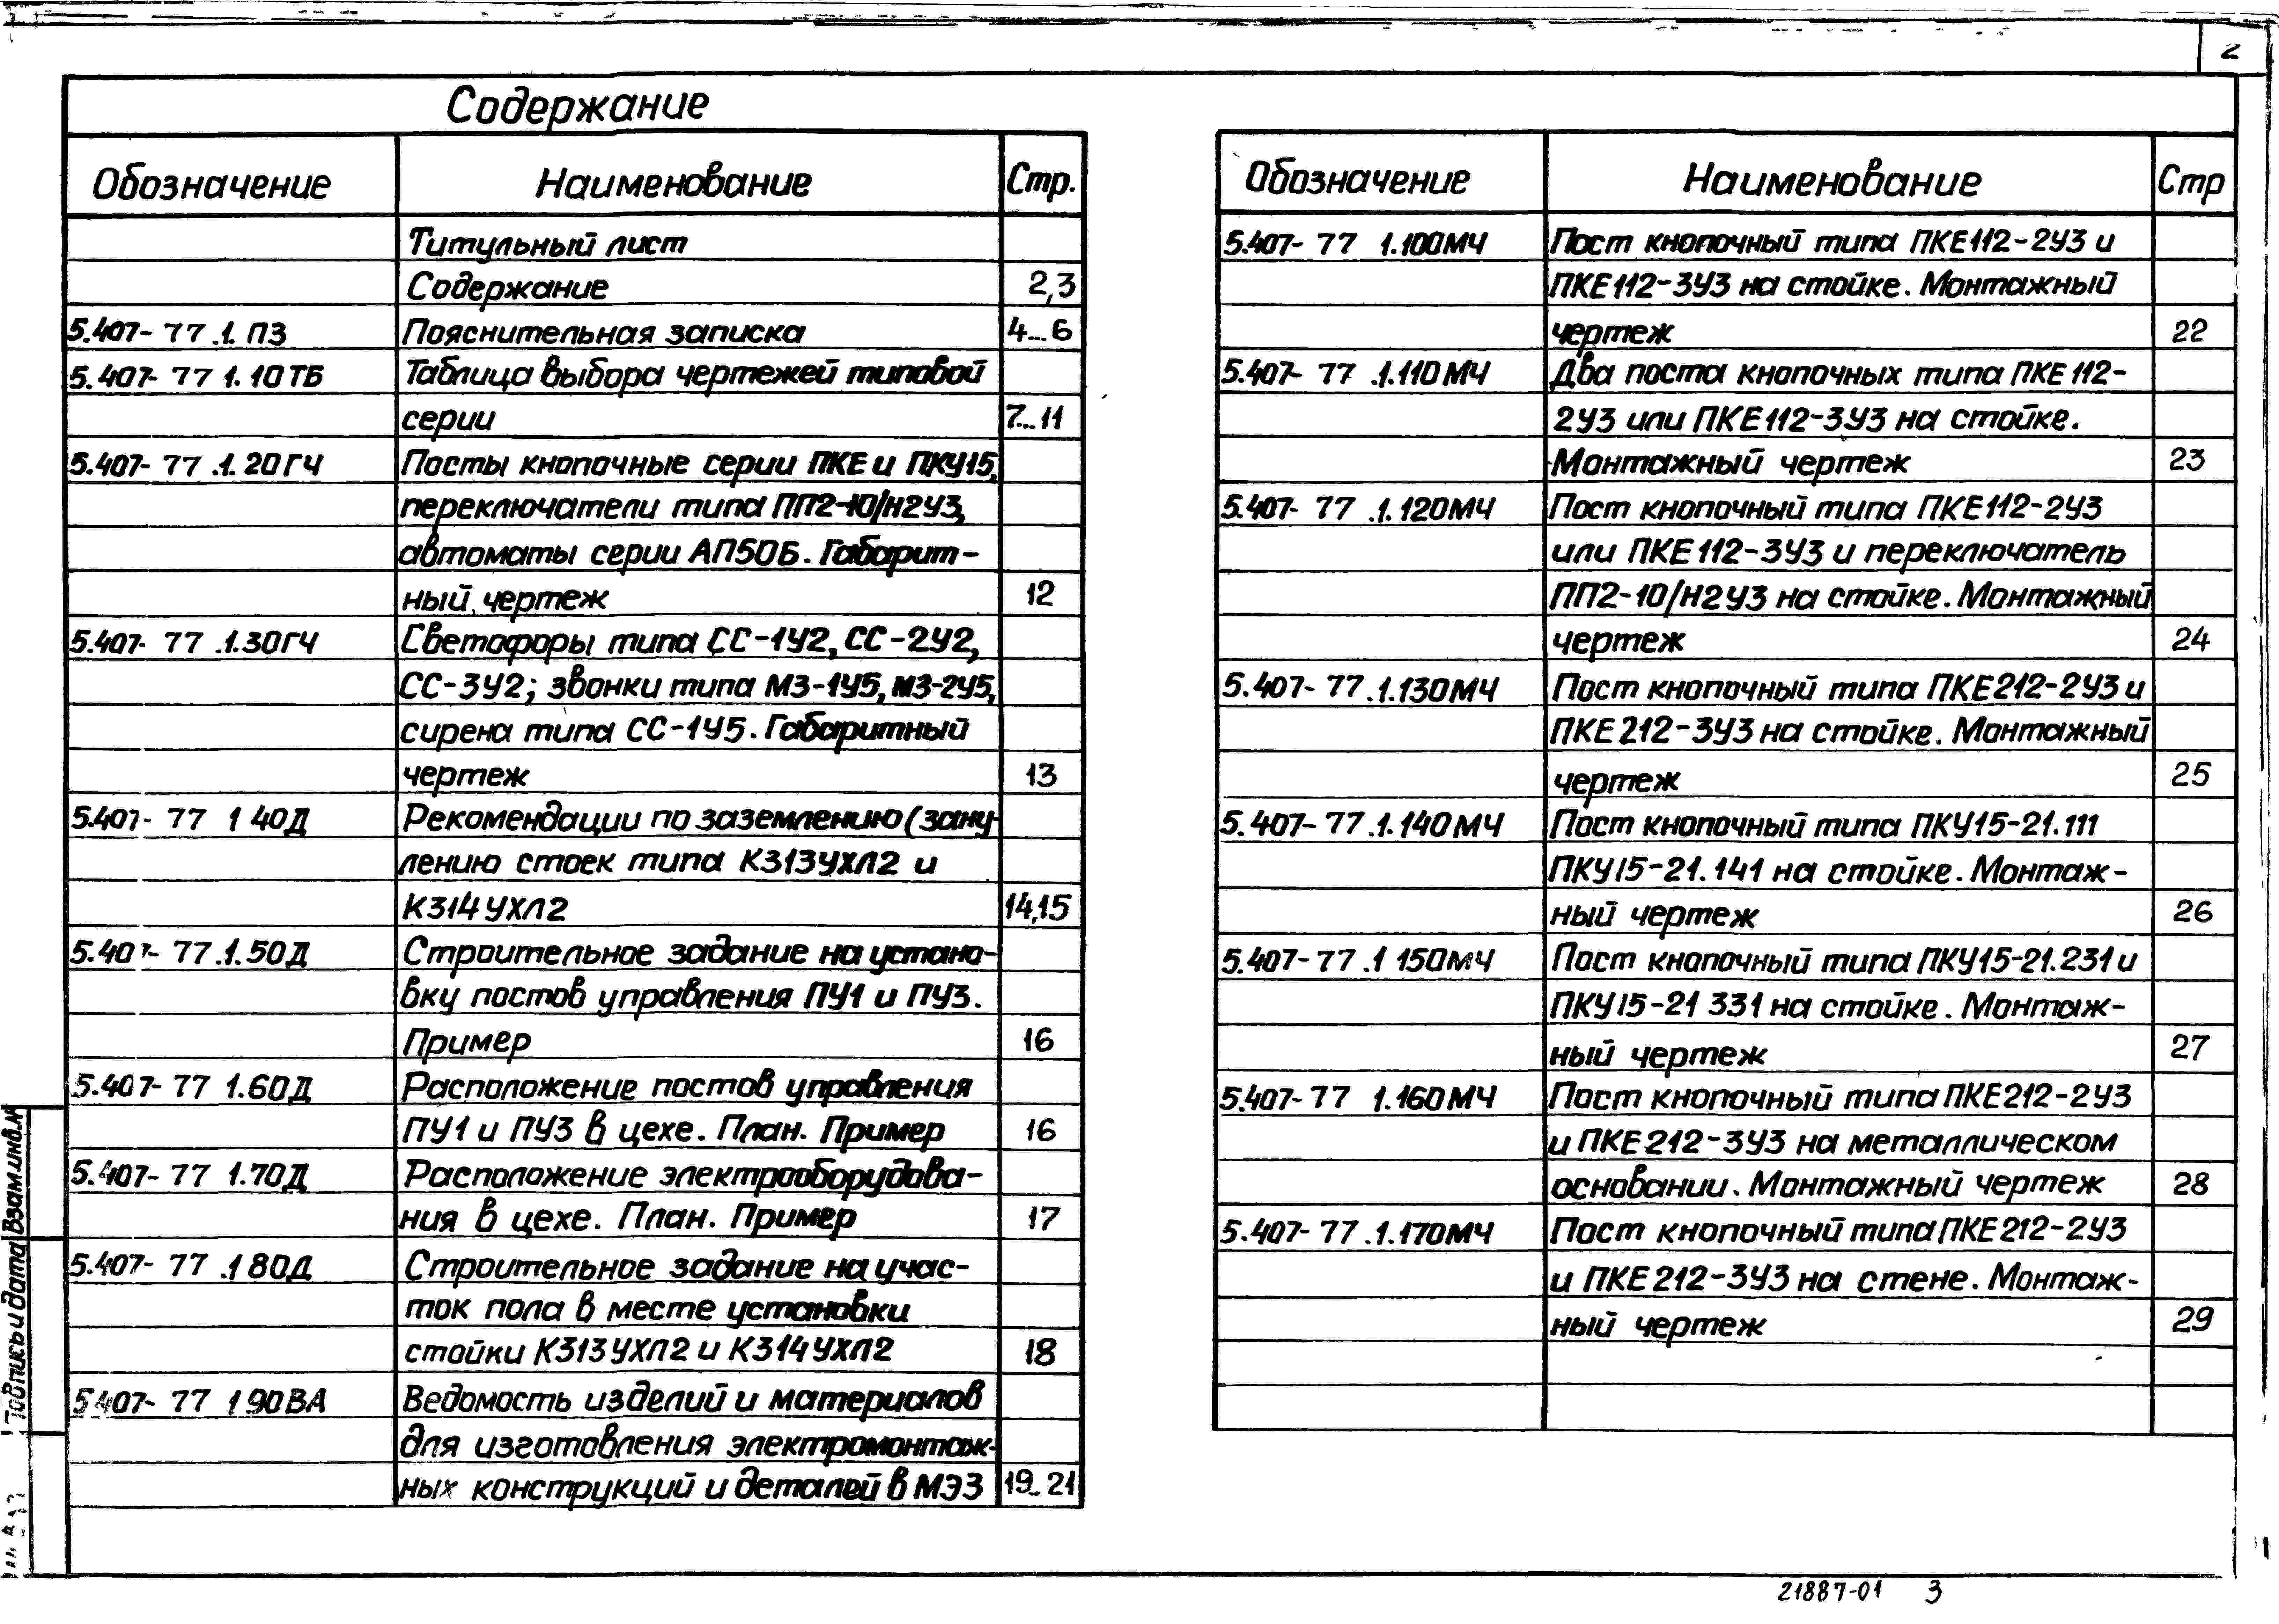 2
Содержание
Обозначение Наименование Стр.
Титульный лист
Содержание 2,3
5.407-77.1.ПЗ Пояснительная записка 4...6
5.407-77 1.10ТБ Таблица выбора чертежей типовой
серии 7...11
5.407-77.1.20ГЧ Посты кнопочные серии ПКЕ и ПКУ15,
переключатели типа ПП2-10/Н2У3,
автоматы серии АП50Б. Габарит-
ный чертеж 12
5.407-77.1.30ГЧ Светофоры типа СС-1У2, СС-2У2,
СС-3У2; звонки типа МЗ-1У5, МЗ-2У5,
сирена типа СС-1У5. Габаритный
чертеж 13
5.407-77 1 40Д Рекомендации по заземлению (зану-
лению стоек типа К313УХЛ2 и
К314УХЛ2 14,15
5.407-77.1.50Д Строительное задание на устано-
вку постов управления ПУ1 и ПУ3.
Пример 16
5.407-77 1.60Д Расположение постов управления
ПУ1 и ПУ3 в цехе. План. Пример 16
5.407-77 1.70Д Расположение электрооборудова-
ния в цехе. План. Пример 17
5.407-77.1 80Д Строительное задание на учас-
ток пола в месте установки
стойки К313УХЛ2 и К314УХЛ2 18
5.407-77 1.90ВА Ведомость изделий и материалов
для изготовления электромонтаж-
ных конструкций и деталей в МЭЗ 19...21
Обозначение Наименование Стр
5.407-77 1.100МЧ Пост кнопочный типа ПКЕ112-2У3 и
ПКЕ112-3У3 на стойке. Монтажный
чертеж 22
5.407-77.1.110МЧ Два поста кнопочных типа ПКЕ112-
2У3 или ПКЕ112-3У3 на стойке.
Монтажный чертеж 23
5.407-77.1.120МЧ Пост кнопочный типа ПКЕ112-2У3
или ПКЕ112-3У3 и переключатель
ПП2-10/Н2У3 на стойке. Монтажный
чертеж 24
5.407-77.1.130МЧ Пост кнопочный типа ПКЕ212-2У3 и
ПКЕ212-3У3 на стойке. Монтажный
чертеж 25
5.407-77.1.140МЧ Пост кнопочный типа ПКУ15-21.111
ПКУ15-21.141 на стойке. Монтаж-
ный чертеж 26
5.407-77.1 150МЧ Пост кнопочный типа ПКУ15-21.231 и
ПКУ15-21 331 на стойке. Монтаж-
ный чертеж 27
5.407-77 1.160МЧ Пост кнопочный типа ПКЕ212-2У3
и ПКЕ212-3У3 на металлическом
основании. Монтажный чертеж 28
5.407-77.1.170МЧ Пост кнопочный типа ПКЕ212-2У3
и ПКЕ212-3У3 на стене. Монтаж-
ный чертеж 29
Взам.инв.№
Подпись и дата
21887-01 3